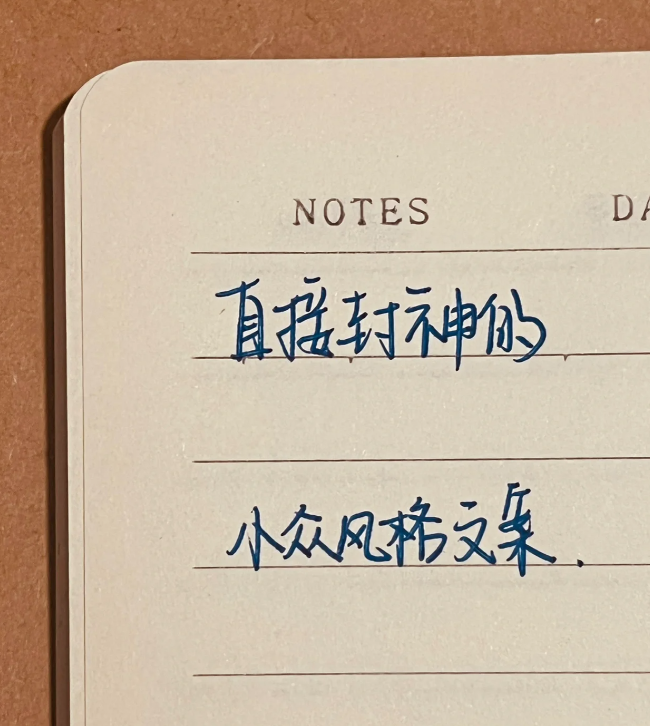 NOTES
直接封神的
小众风格文案.